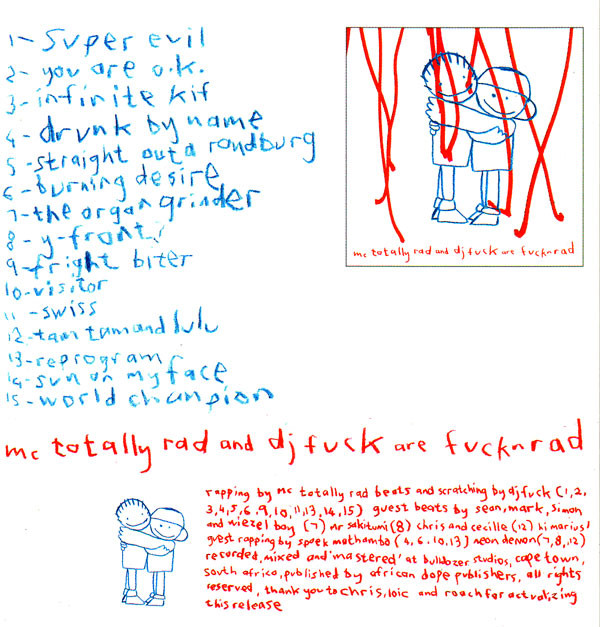 1- Super evil
2- you are o.k.
3- infinite kif
4- drunk by name
5- straight outa randburg
6- burning desire
7- the organ grinder
8- y-front!
9- fright biter
10- visitor
11- swiss
12- tam tumand lulu
13- reprogram
14- sun on my face
15- world champion
mc totally rad and dj fuck are fucknrad
mc totally rad and dj fuck are fucknrad
rapping by mc totally rad beats and scratching by dj fuck (1,2,
3,4,5,6,9,10,11,13,14,15) guest beats by sean, mark, simon
and wiezel boy (7) mr sakitumi (8) chris and cecille (12) hi marius!
guest rapping by spoek mathambo (4,6,10,13) neon demon (7,8,12)
recorded, mixed and 'mastered' at bulldozer studios, cape town,
south africa, published by african dope publishers, all rights
reserved, thank you to chris, loic and roach for actualizing
this release